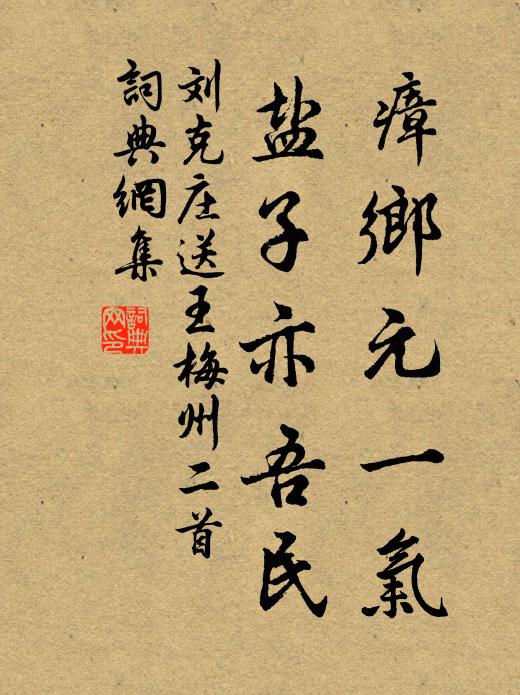 瘴鄉元一氣
盐子亦吾民
刘克庄送王梅州二首
詞典網集
詞典網印